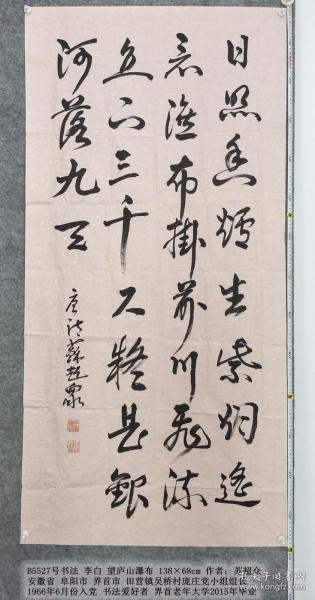 日照香炉生紫烟遥
看瀑布掛前川飛流
直下三千尺疑是銀
河落九天
唐诗蘇超眾
B5527号书法 李白 望庐山瀑布 138×68cm 作者：苏超众
安徽省 阜阳市 界首市 田营镇吴桥村庞庄党小组组长
1966年6月份入党 书法爱好者 界首老年大学2015年毕业